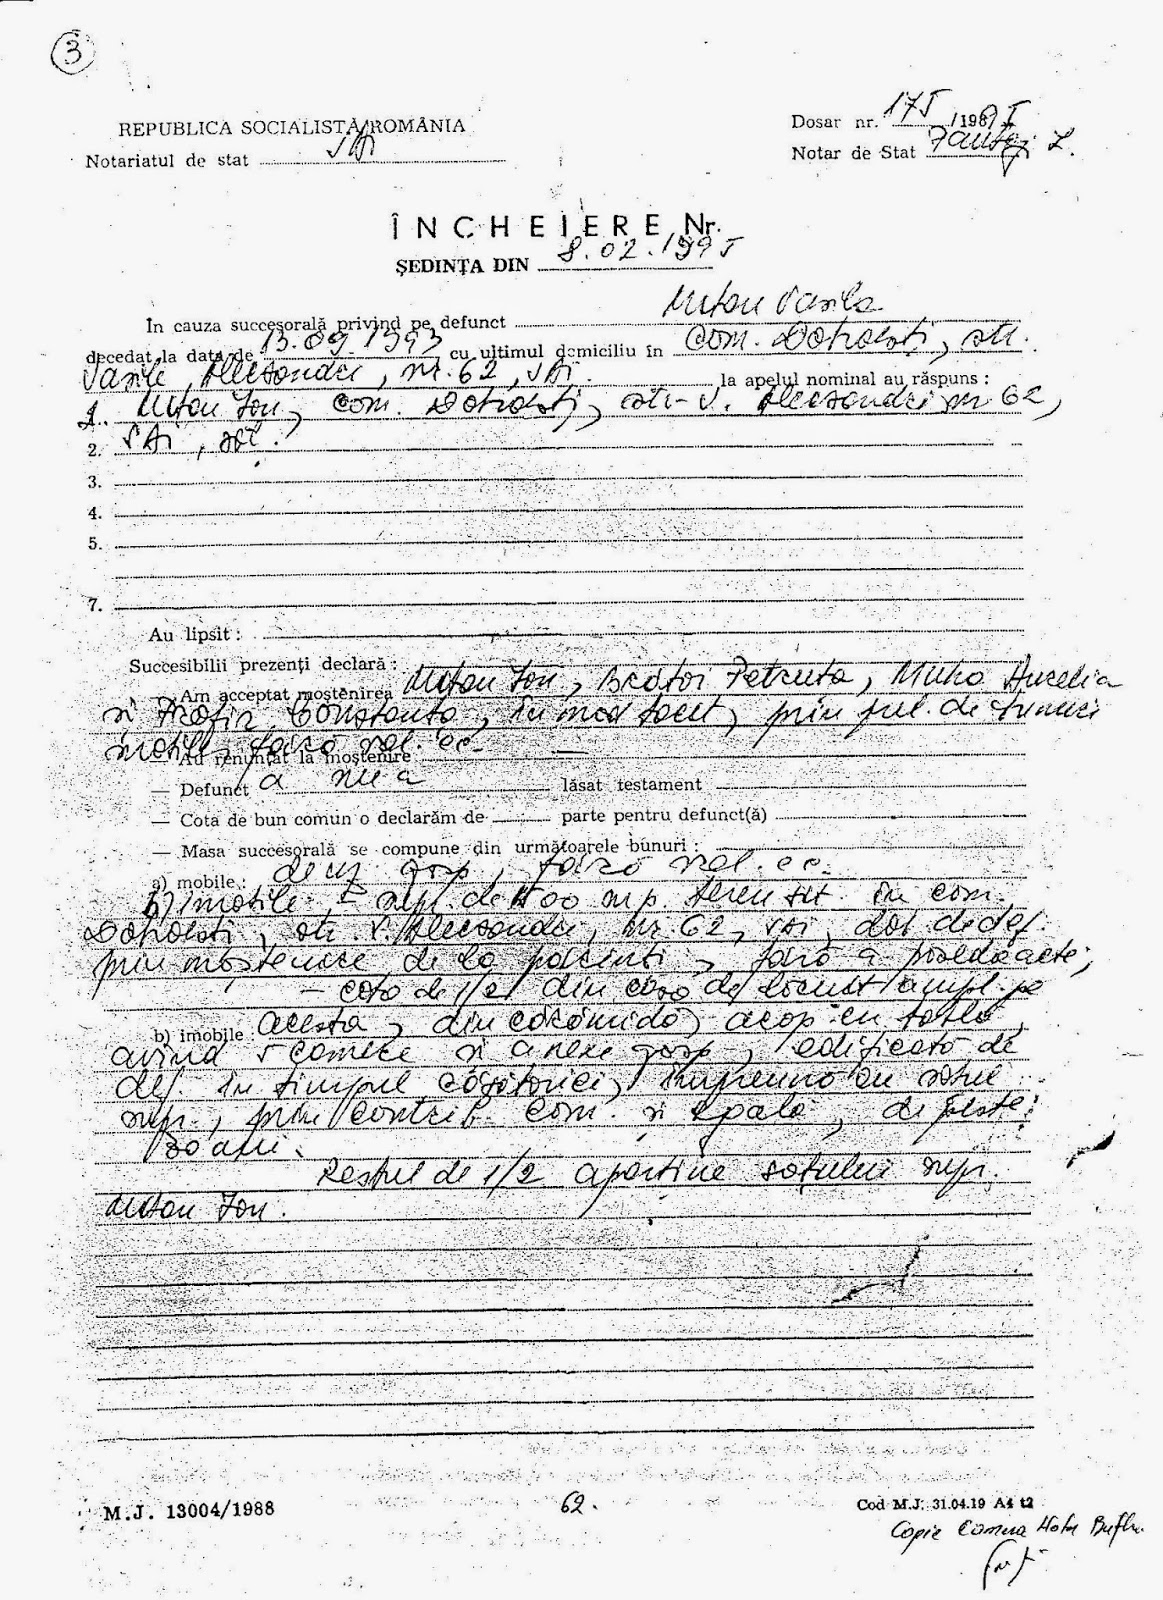 3
REPUBLICA SOCIALISTĂ ROMÂNIA
Notariatul de stat
Dosar nr. 175 /198
Notar de Stat
ÎNCHEIERE Nr.
ŞEDINŢA DIN 8.02.1995
În cauza succesorală privind pe defunct
decedat la data de 13.09.1993 cu ultimul domiciliu în com. Dobroești, str.
Vasile Alecsandri, nr. 62, SAI. la apelul nominal au răspuns :
1. Ion, com. Dobroești, str. V. Alecsandri nr 62,
2. SAI, soț.
3.
4.
5.
7.
Au lipsit :
Succesibilii prezenţi declară :
— Am acceptat moştenirea Ion, Petruta, Aurelia
și Constanta, în mod tacit, prin prel. de bunuri
mobile, fără val. ec.
— Au renunţat la moştenire —
— Defunct a nu a lăsat testament
— Cota de bun comun o declarăm de parte pentru defunct(ă)
— Masa succesorală se compune din următoarele bunuri :
a) mobile : de uz gosp, fără val. ec.
b) imobile - supr. de mp. teren sit. în com.
Dobroești, str. V. Alecsandri, nr. 62, SAI, dob. de def.
prin moștenire de la părinți, fără a poseda acte;
- cota de 1/2 din casa de locuit ampl. pe
b) imobile acesta, din cărămidă, acop. cu tablă,
avînd 5 camere și anexe gosp, edificată de
def. în timpul căsătoriei, împreună cu soțul
supr., prin contrib. com. și egală, de peste
30 ani.
Restul de 1/2 aparține soțului supr.
Ion.
M.J. 13004/1988
62.
Cod M.J. 31.04.19 A4 t2
Copie